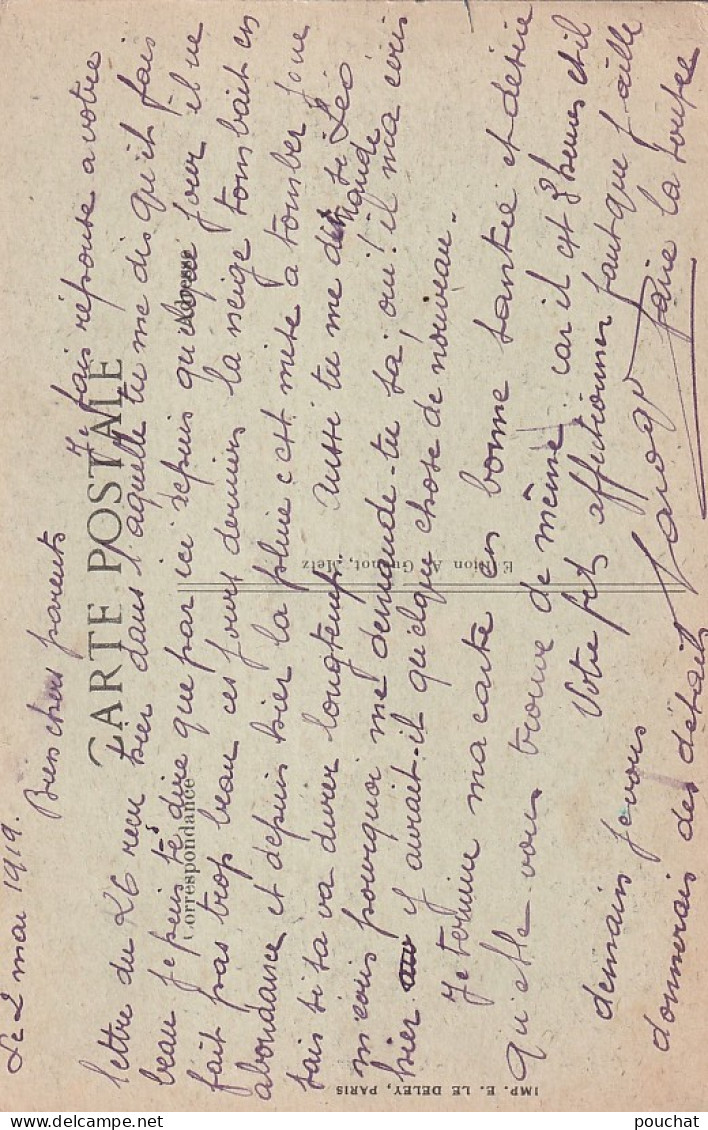 Le 2 mai 1919.
Bien chers parents
Je fais réponse a votre
lettre du 26 recu hier dans l'aquelle tu me dis qu'il fais
beau je puis te dire que par ici depuis quelque jour il ne
fait pas trop beau ces jours derniers la neige tombait en
abondance et depuis hier la pluie c'est mise a tomber je ne
sais si sa va durer longtemps. Aussi tu me demande si Léo
m'écris pourquoi me demande-tu sa, oui! il m'a écris
hier y aurait-il quelque chose de nouveau.
Je termine ma carte en bonne santée et désire
qu'elle vous trouve de même car il est 8 heures et il
Votre fils affectionner faut que j'aille
faire la soupée
demain je vous
donnerais des détails
CARTE POSTALE
Correspondance
Adresse
Edition A. Guenot, Metz
IMP. E. LE DELEY, PARIS
delcampe.net
pouchat